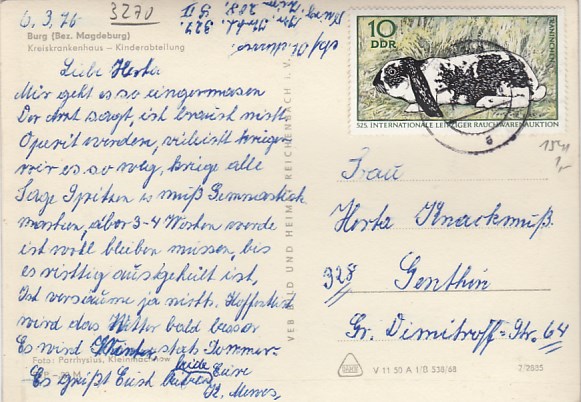 6.3.76
3270
Burg (Bez. Magdeburg)
Kreiskrankenhaus – Kinderabteilung
Liebe Herta
Mir geht es so eingermasen
Der Arzt sagt, ist brauch nicht
Operirt werden, vieleicht kriegen
wir es so weg, kriege alle
Tage Spritzen u muß Gymnastik
machen, aber 3-4 Wochen werde
ist wohl bleiben müssen, bis
es richtig ausgeheilt ist,
Ist versäume ja nicht. Hoffentlich
wird das Wetter bald besser
Es wird Winter statt Sommer
Es grüßt Euch beide Eure
Foto: Parrhysius, Kleinmachnow
VEB BILD UND HEIMAT REICHENBACH i. V.
10
DDR
KANINCHEN
525. INTERNATIONALE LEIPZIGER RAUCHWARENAUKTION
Frau
Herta Knackmuß
328 Genthin
Gr. Dimitroff-Str. 64
V 11 50 A 1/B 538/68
7/2885